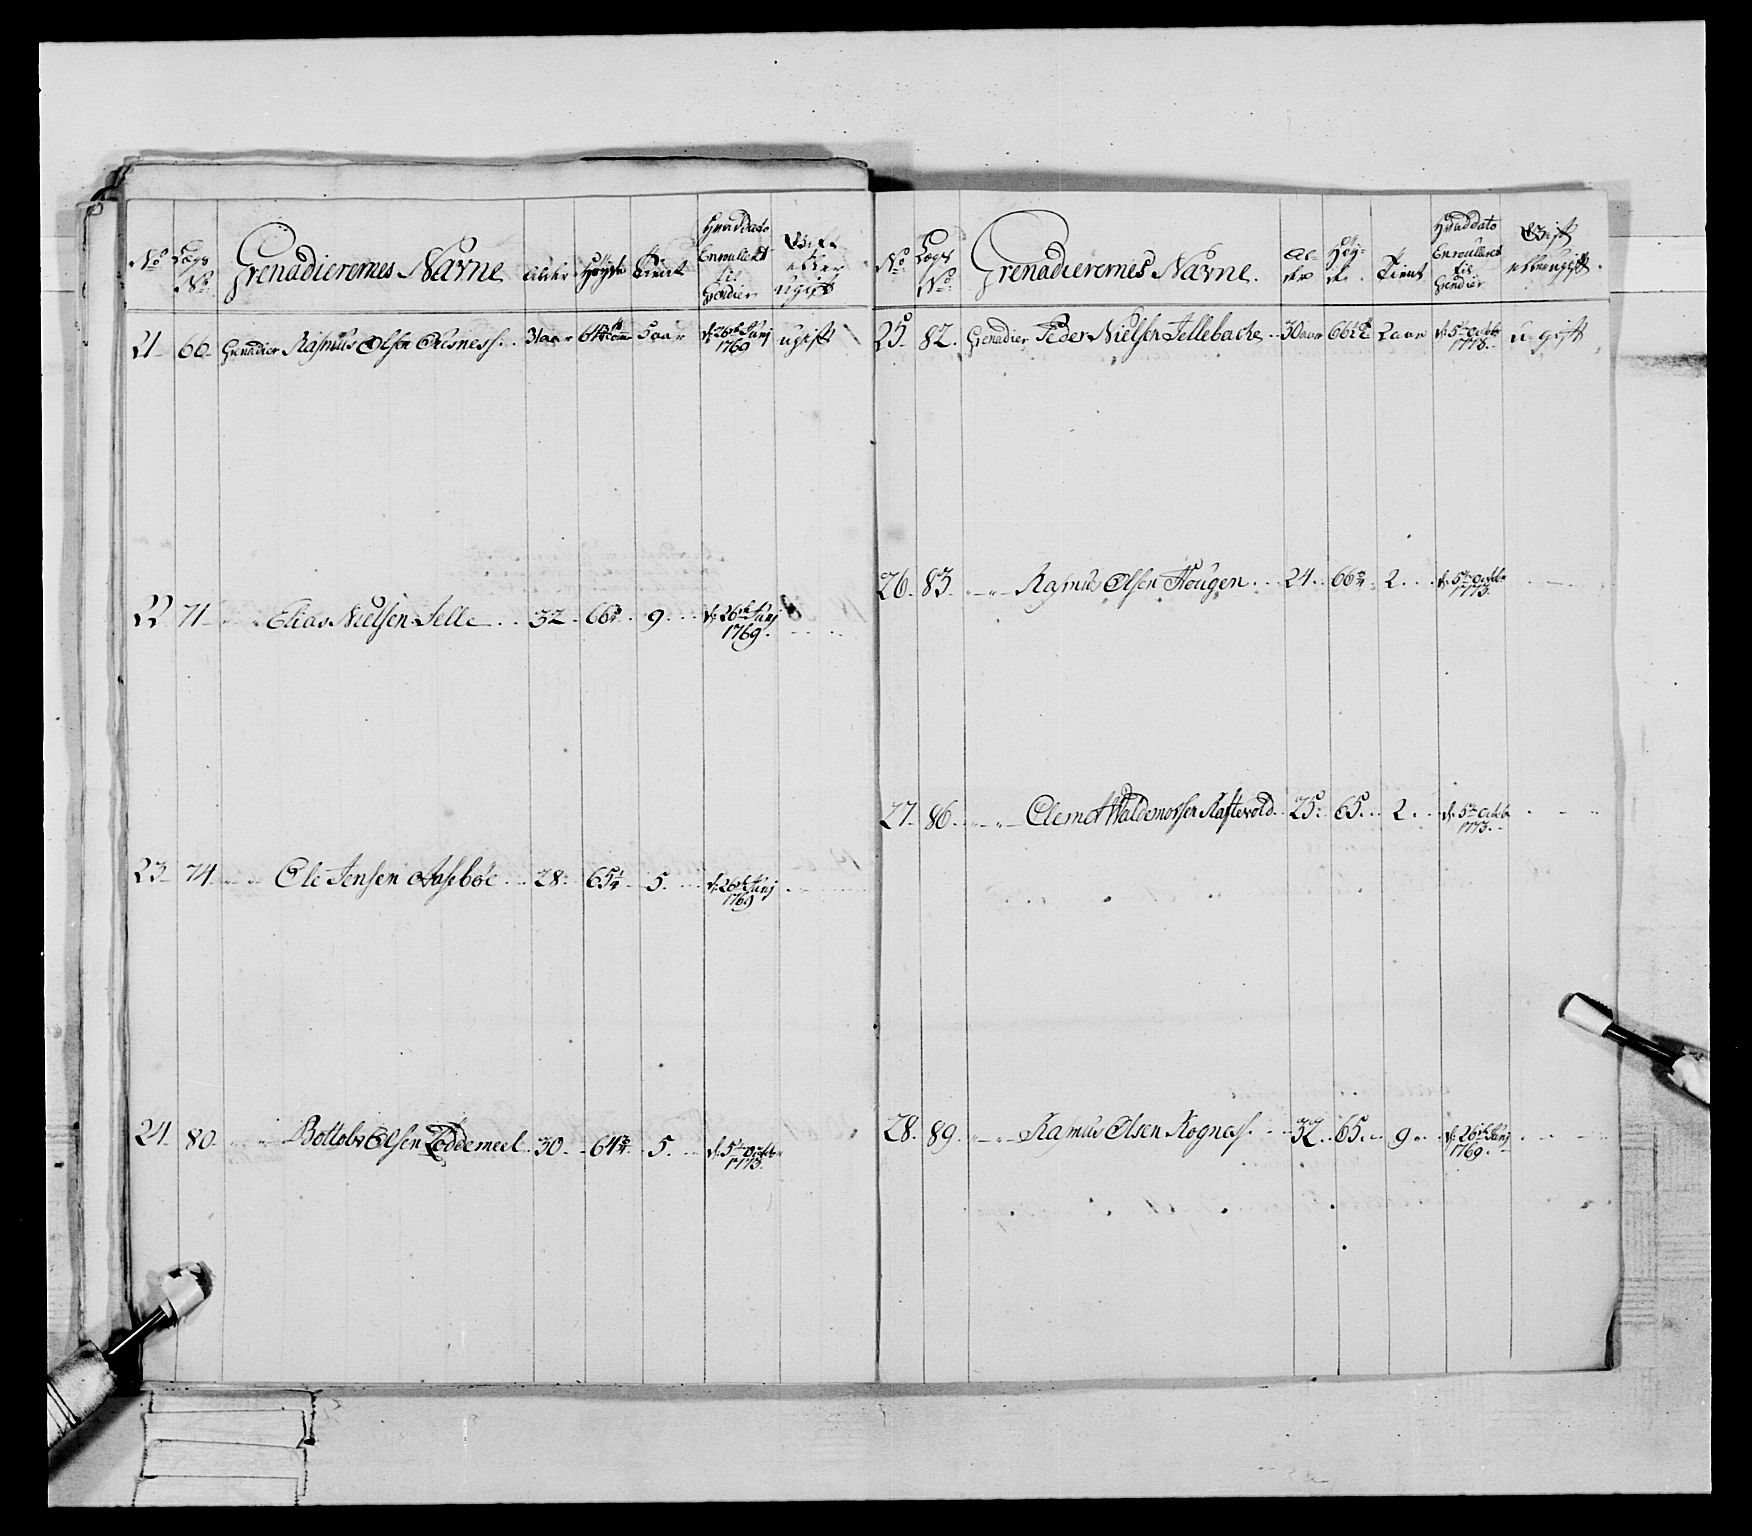 No Lægs No Grenadierernes Navne Alder Høyde Tient Hvad dato Enroulleret til Grendier Gift eller ugift
21 66 Grenadier Rasmus Olsen 31 aar 64 5 aar d: 26de Junj 1769 ugift
22 71 Elias Nielsen Selle 32 66 9 d: 26de Junj 1769
23 74 Ole Jensen Aasebøe 28 65 1/4 5 d: 26de Junj 1769
24 80 Olsen Loddemeel 30 64 3/4 5 d: 5te Octobr 1773
No Lægs No Grenadierernes Navne Alder Høyde Tient Hvad dato Enroulleret til Grendier Gift eller ugift
25 82 Grenadier Peder Nielsen Sellebache 30 aar 66 2 aar d: 5te Octobr 1773 ugift
26 83 Rasmus Olsen Hougen 24 66 3/4 2 d: 5te Octobr 1773
27 86 Clemet 25 65 2 d: 5te Octobr 1773
28 89 Rasmus Olsen Rognes 32 65 9 d: 26de Junj 1769